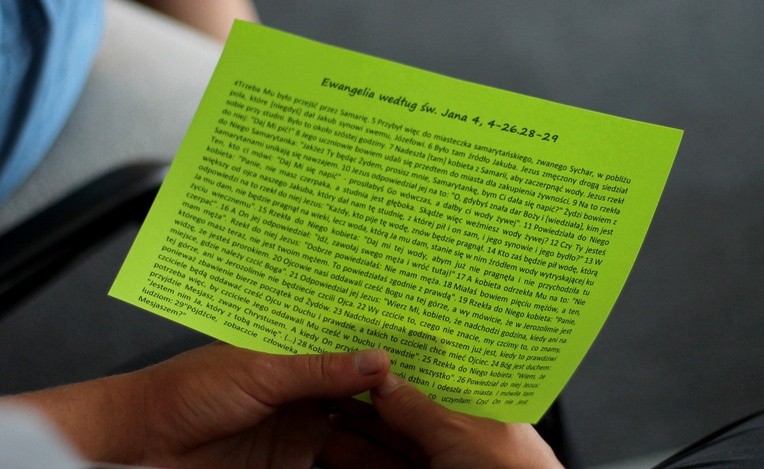 Ewangelia według św. Jana 4, 4-26.28-29
4Trzeba Mu było przejść przez Samarię. 5 Przybył więc do miasteczka samarytańskiego, zwanego Sychar, w pobliżu
pola, które [niegdyś] dał Jakub synowi swemu, Józefowi. 6 Było tam źródło Jakuba. Jezus zmęczony drogą siedział
sobie przy studni. Było to około szóstej godziny. 7 Nadeszła [tam] kobieta z Samarii, aby zaczerpnąć wody. Jezus rzekł
do niej: "Daj Mi pić!" 8 Jego uczniowie bowiem udali się przedtem do miasta dla zakupienia żywności. 9 Na to rzekła
do Niego Samarytanka: "Jakżeż Ty będąc Żydem, prosisz mnie, Samarytankę, bym Ci dała się napić?" Żydzi bowiem z
Samarytanami unikają się nawzajem. 10 Jezus odpowiedział jej na to: "O, gdybyś znała dar Boży i [wiedziała], kim jest
Ten, kto ci mówi: "Daj Mi się napić" - prosiłabyś Go wówczas, a dałby ci wody żywej". 11 Powiedziała do Niego
kobieta: "Panie, nie masz czerpaka, a studnia jest głęboka. Skądże więc weźmiesz wody żywej? 12 Czy Ty jesteś
większy od ojca naszego Jakuba, który dał nam tę studnię, z której pił i on sam, i jego synowie i jego bydło?" 13 W
odpowiedzi na to rzekł do niej Jezus: "Każdy, kto pije tę wodę, znów będzie pragnął. 14 Kto zaś będzie pił wodę, którą
Ja mu dam, nie będzie pragnął na wieki, lecz woda, którą Ja mu dam, stanie się w nim źródłem wody wytryskającej ku
życiu wiecznemu". 15 Rzekła do Niego kobieta: "Daj mi tej wody, abym już nie pragnęła i nie przychodziła tu
czerpać". 16 A On jej odpowiedział: "Idź, zawołaj swego męża i wróć tutaj!" 17 A kobieta odrzekła Mu na to: "Nie
mam męża". Rzekł do niej Jezus: "Dobrze powiedziałaś: Nie mam męża. 18 Miałaś bowiem pięciu mężów, a ten,
którego masz teraz, nie jest twoim mężem. To powiedziałaś zgodnie z prawdą". 19 Rzekła do Niego kobieta: "Panie,
widzę, że jesteś prorokiem. 20 Ojcowie nasi oddawali cześć Bogu na tej górze, a wy mówicie, że w Jerozolimie jest
miejsce, gdzie należy czcić Boga". 21 Odpowiedział jej Jezus: "Wierz Mi, kobieto, że nadchodzi godzina, kiedy ani na
tej górze, ani w Jerozolimie nie będziecie czcili Ojca. 22 Wy czcicie to, czego nie znacie, my czcimy to, co znamy,
ponieważ zbawienie bierze początek od Żydów. 23 Nadchodzi jednak godzina, owszem już jest, kiedy to prawdziwi
czciciele będą oddawać cześć Ojcu w Duchu i prawdzie, a takich to czcicieli chce mieć Ojciec. 24 Bóg jest duchem:
potrzeba więc, by czciciele Jego oddawali Mu cześć w Duchu i prawdzie". 25 Rzekła do Niego kobieta: "Wiem, że
przyjdzie Mesjasz, zwany Chrystusem. A kiedy On przyj nam wszystko". 26 Powiedział do niej Jezus:
"Jestem nim Ja, który z tobą mówię". (...) 28 Kobi wój dzban i odeszła do miasta. i mówiła tam
ludziom: 29"Pójdźcie, zobaczcie człowieka co uczyniłam: Czyż On nie jest
Mesjaszem?"